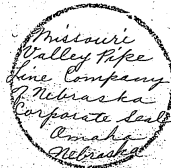 Missouri
Valley Pipe
Line Company
of Nebraska
Corporate Seal
Omaha
Nebraska